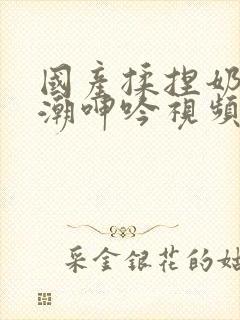 國產揉捏奶
潮呻吟視頻
采金銀花的姑